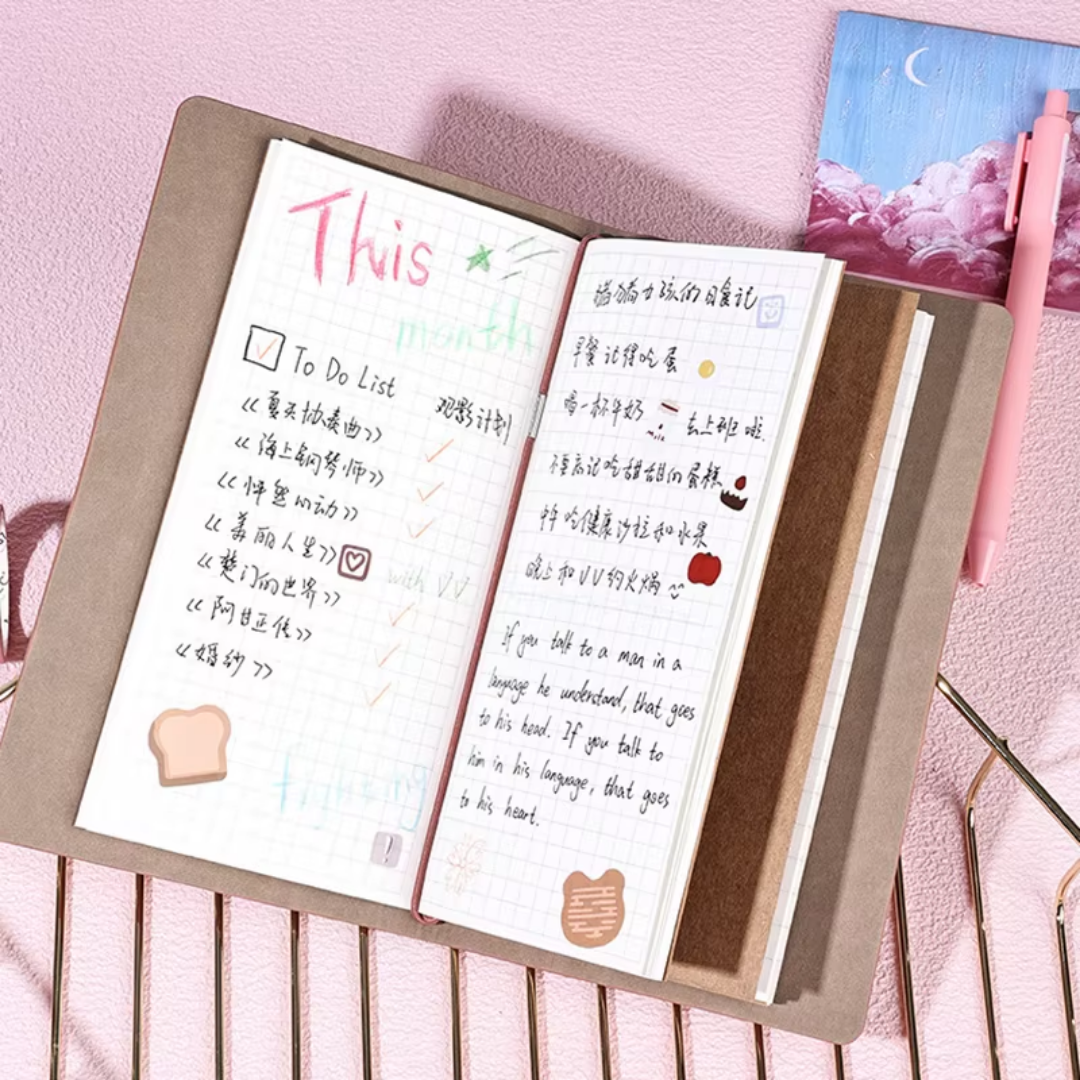 This
month
To Do List
观影计划
《夏天协奏曲》
《海上钢琴师》
《怦然心动》
《美丽人生》
with VV
《楚门的世界》
《阿甘正传》
《婚纱》
fighting
!
猫猫女孩的日食记
早餐记得吃蛋
喝一杯牛奶 去上班啦.
milk
不要忘记吃甜甜的蛋糕
中午吃健康沙拉和水果
晚上和VV约火锅
If you talk to a man in a
language he understand, that goes
to his head. If you talk to
him in his language, that goes
to his heart.